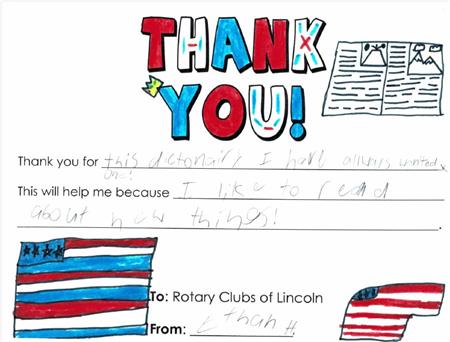 THANK
YOU!
Thank you for this dictonairy I have always wanted
one!
This will help me because I like to read
about new things!
To: Rotary Clubs of Lincoln
From: Ethan H.